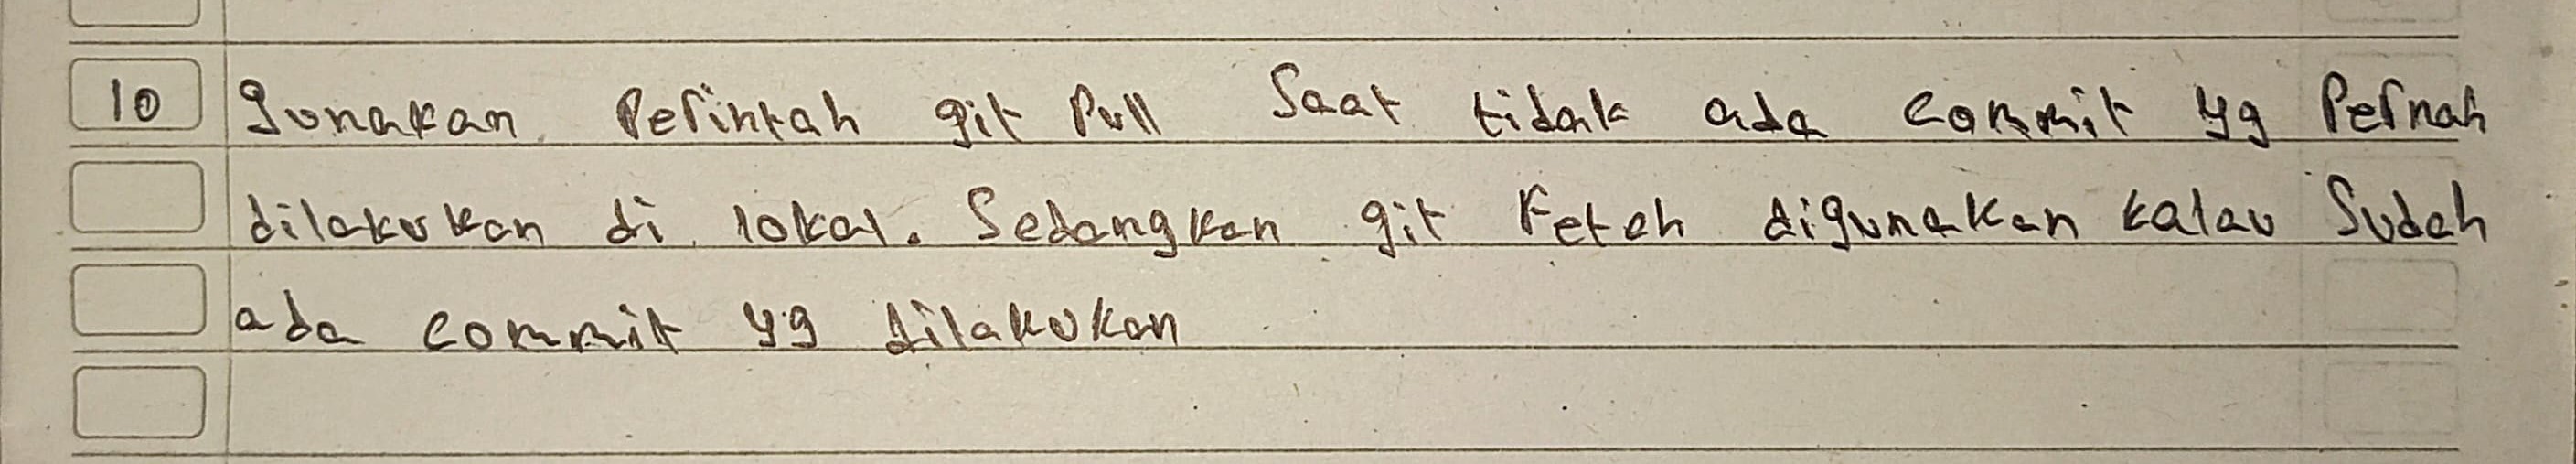 10 Gunakan Perintah git Pull Saat tidak ada commit yg Pernah
dilakukan di lokal. Sedangkan git Fetch digunakan kalau Sudah
ada commit yg dilakukan